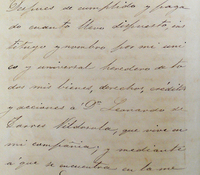 Despues de cumplido y paga
do cuanto llevo dispuesto, ins
tituyo y nombro por mi uni
co y universal heredero de to
dos mis bienes, derechos, creditos
y acciones a Dn Fernando de
Torres que vive en
mi compañia, y mediante
á que se encuentra en la me